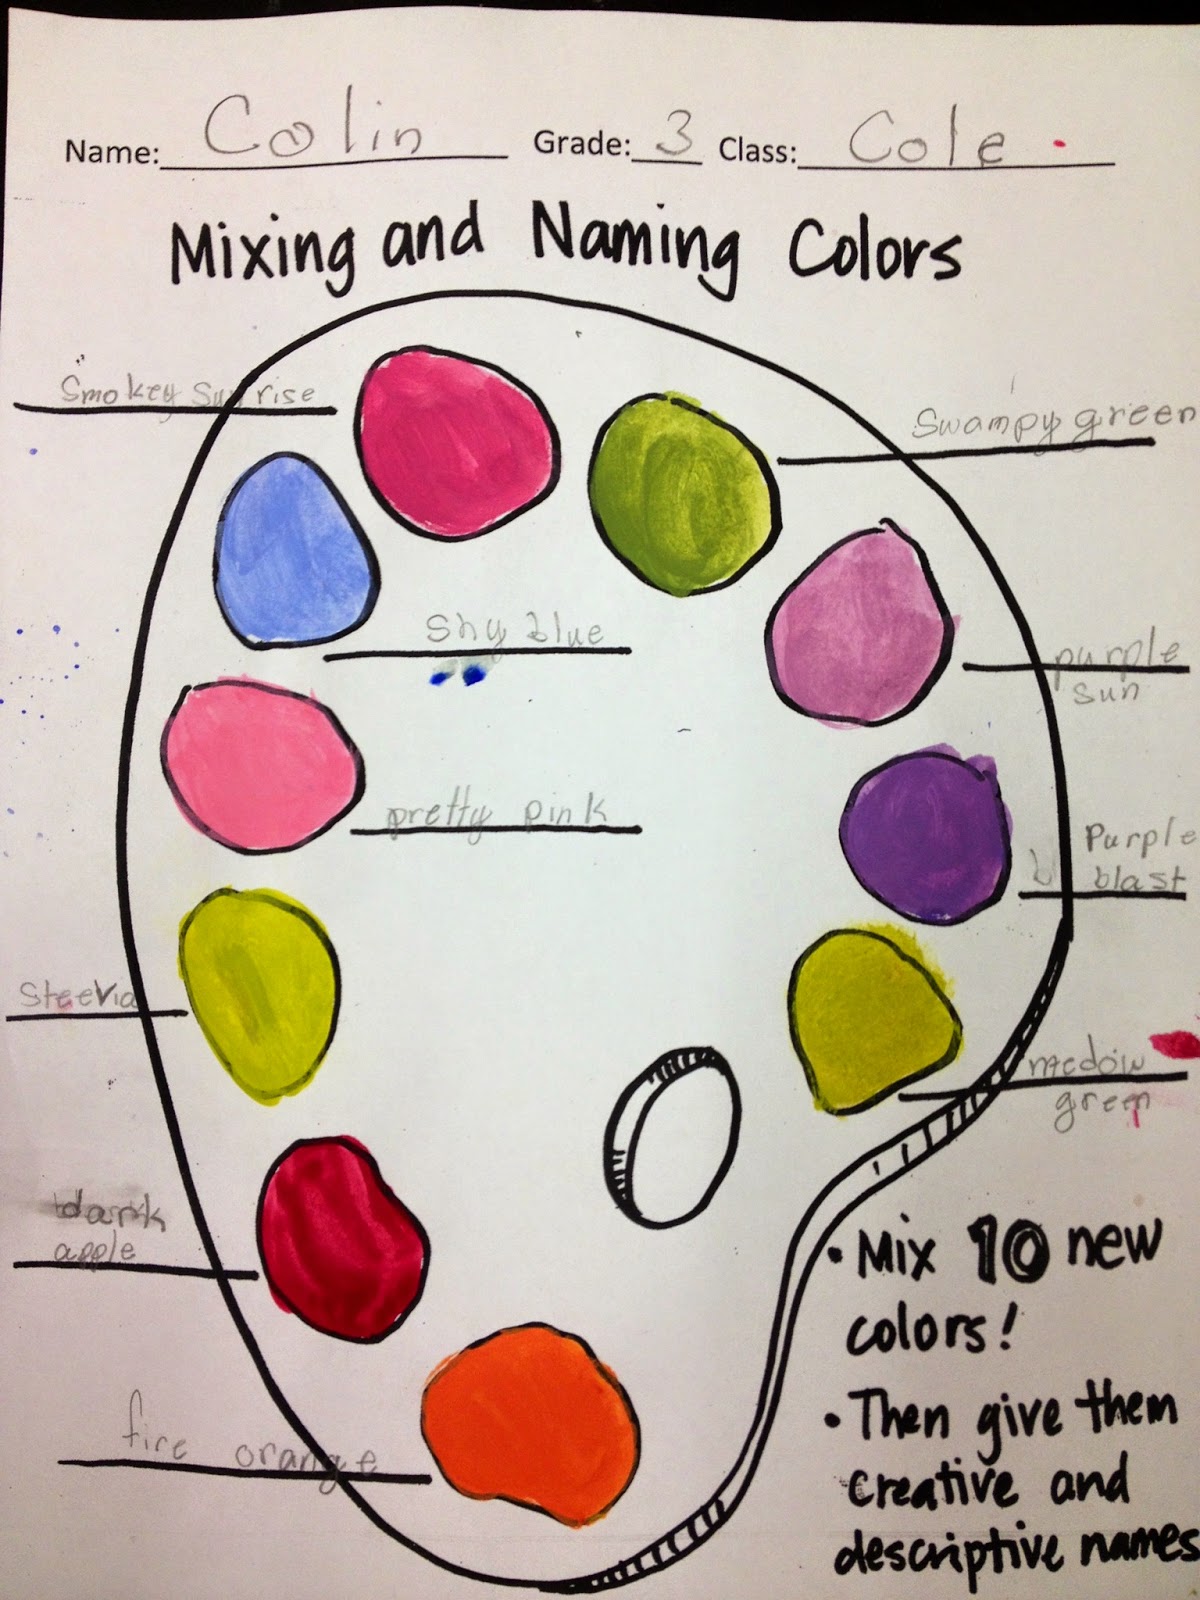 Name: Colin Grade: 3 Class: Cole
Mixing and Naming Colors
Smokey sunrise
Swampy green
shy blue
purple
sun
pretty pink
Purple
blast
Steevia
medow
green
dark
apple
fire orange
• Mix 10 new
colors!
• Then give them
creative and
descriptive names